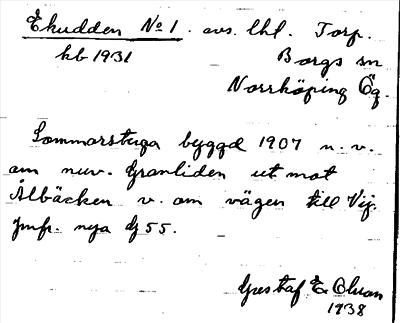 Ekudden No 1. avs. lht. Torp.
kb 1931
Borgs sn
Norrköping Ög.
Sommarstuga byggd 1907 n. v.
om nuv. Granliden ut mot
Ålbäcken v. om vägen till Vij.
Jmfr. nya G 55.
Gustaf E. Olson
1938